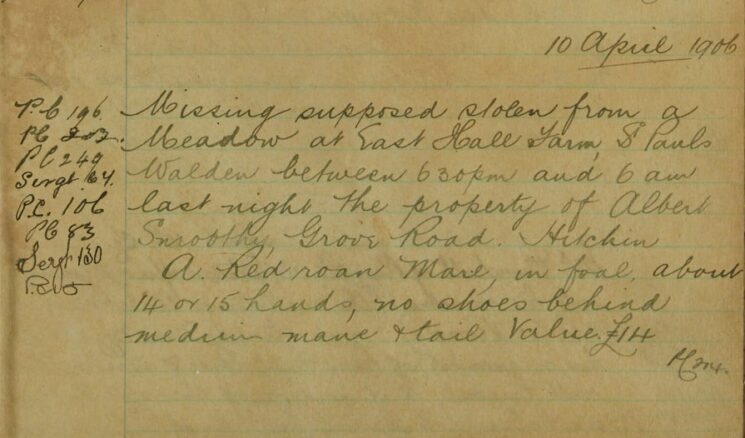 10 April 1906
P.C 196. Missing supposed stolen from a
PC 202. Meadow at East Hall Farm, St Pauls
PC 249 Walden between 6 30pm and 6 am
Sergt 64. last night the property of Albert
P.C. 106
PC 83 Smoothy, Grove Road. Hitchin
Sergt 130 A. Red roan Mare, in foal, about
14 or 15 hands, no shoes behind
medium mane & tail Value. £14